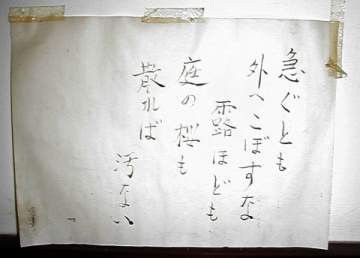 急ぐとも
外へこぼすな
露ほども
庭の桜も
散れば
汚ない